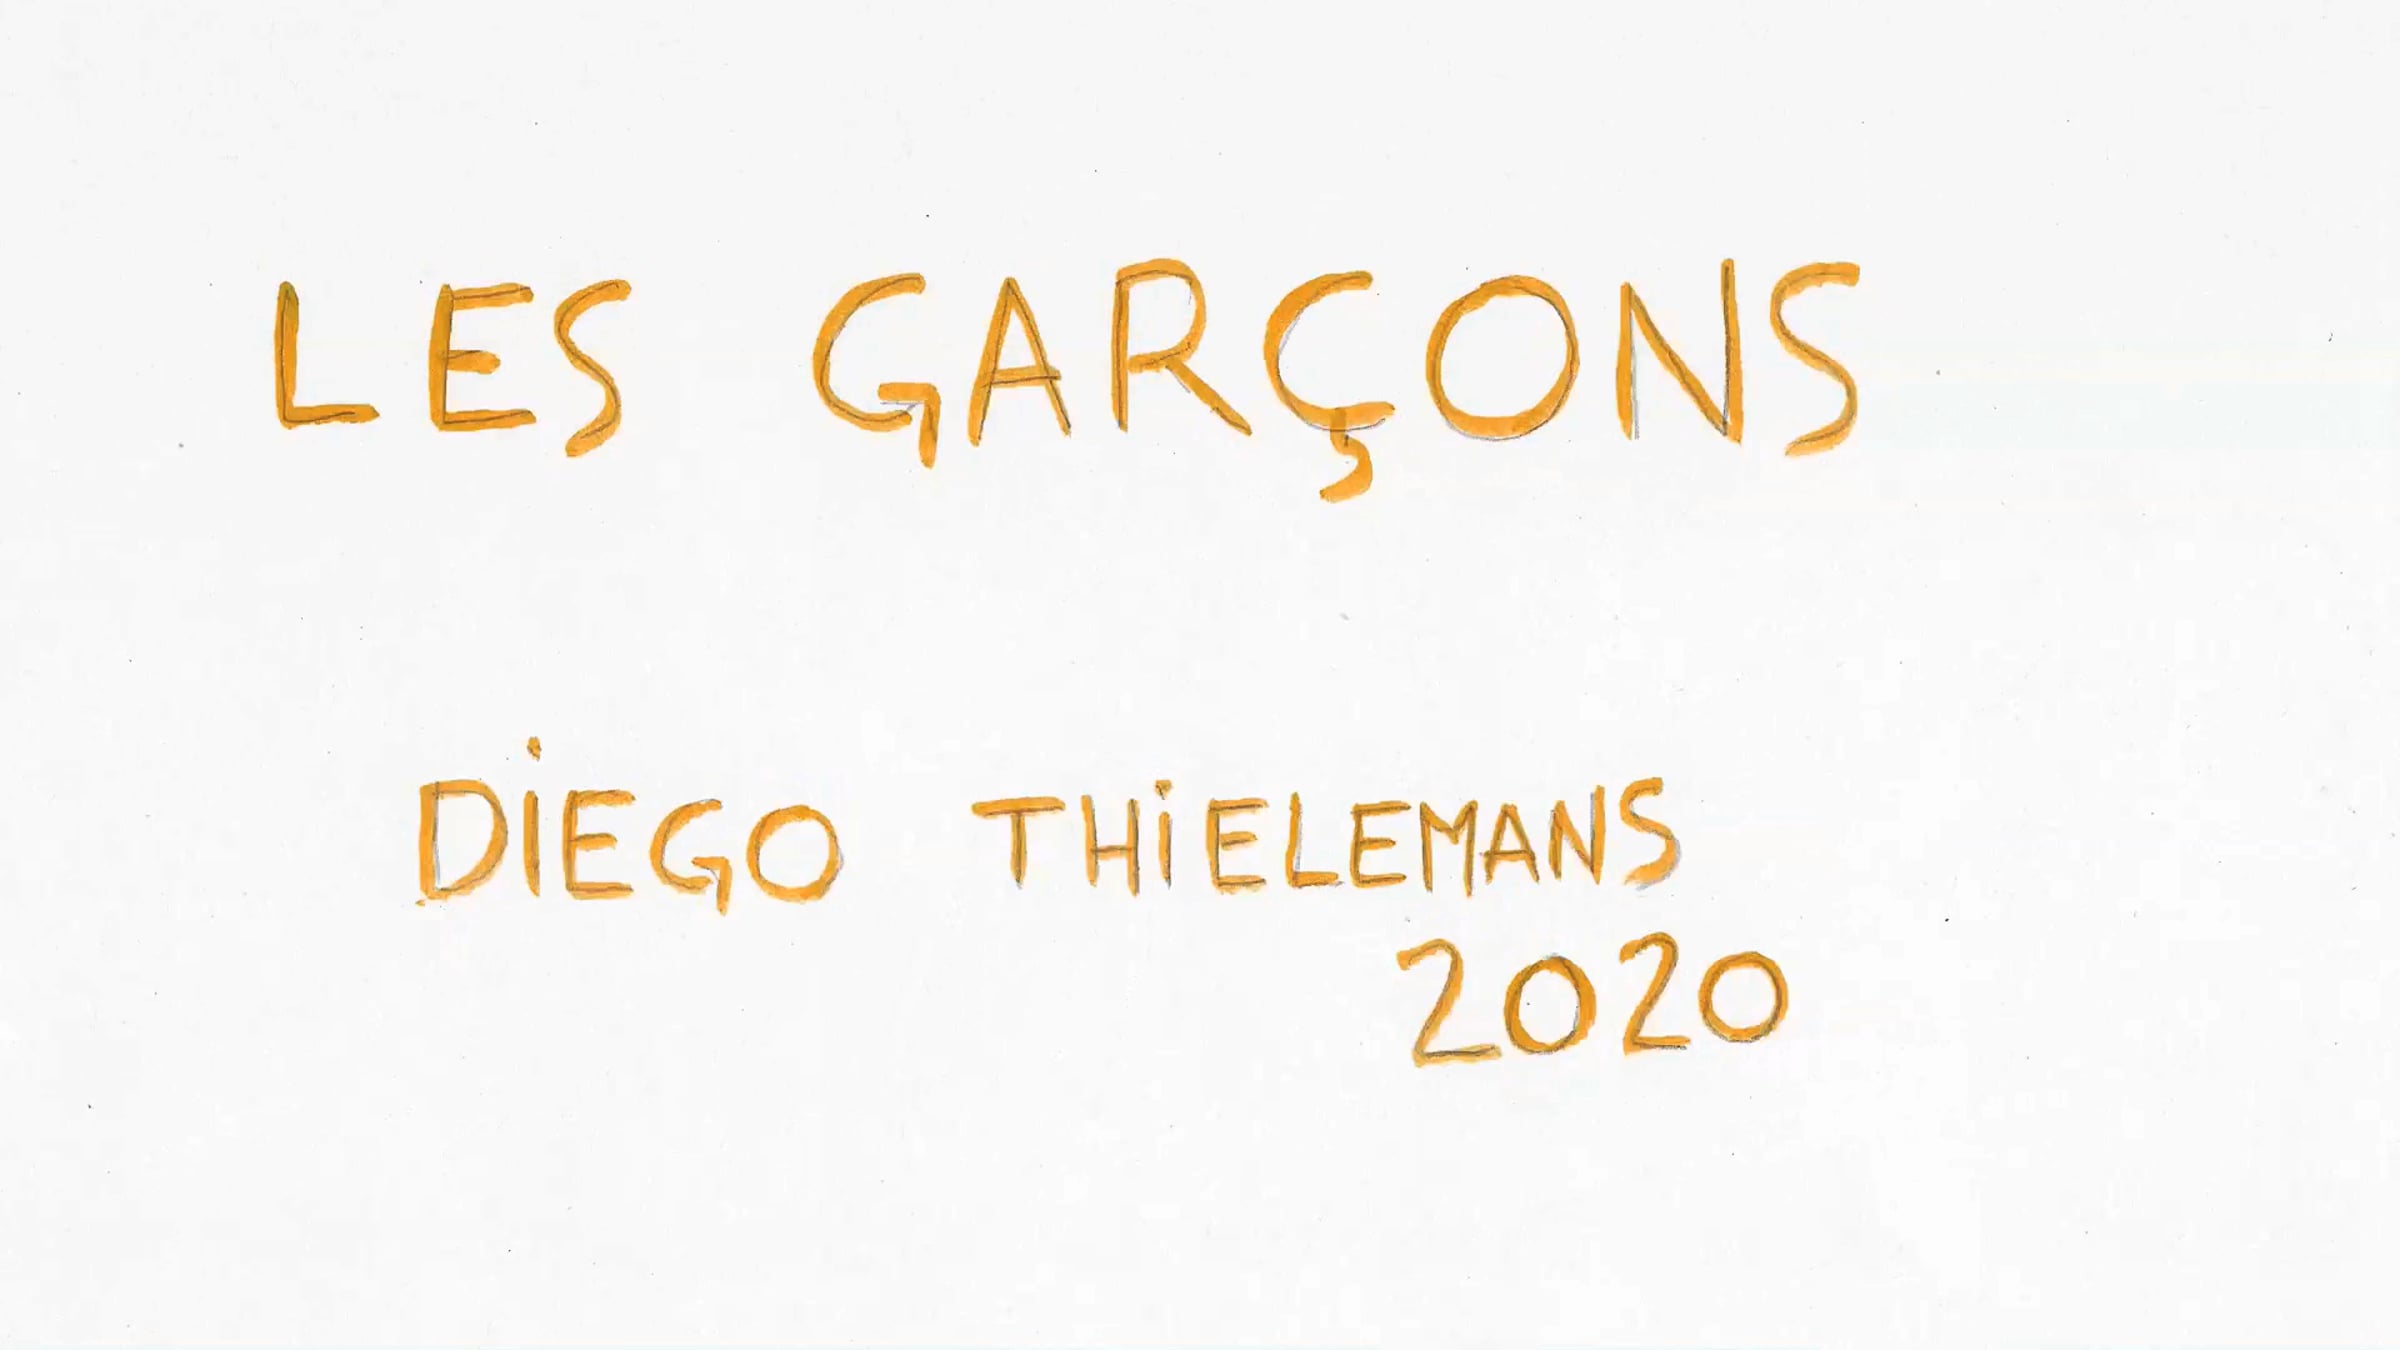 LES GARÇONS
DiEGO THiELEMANS
2020